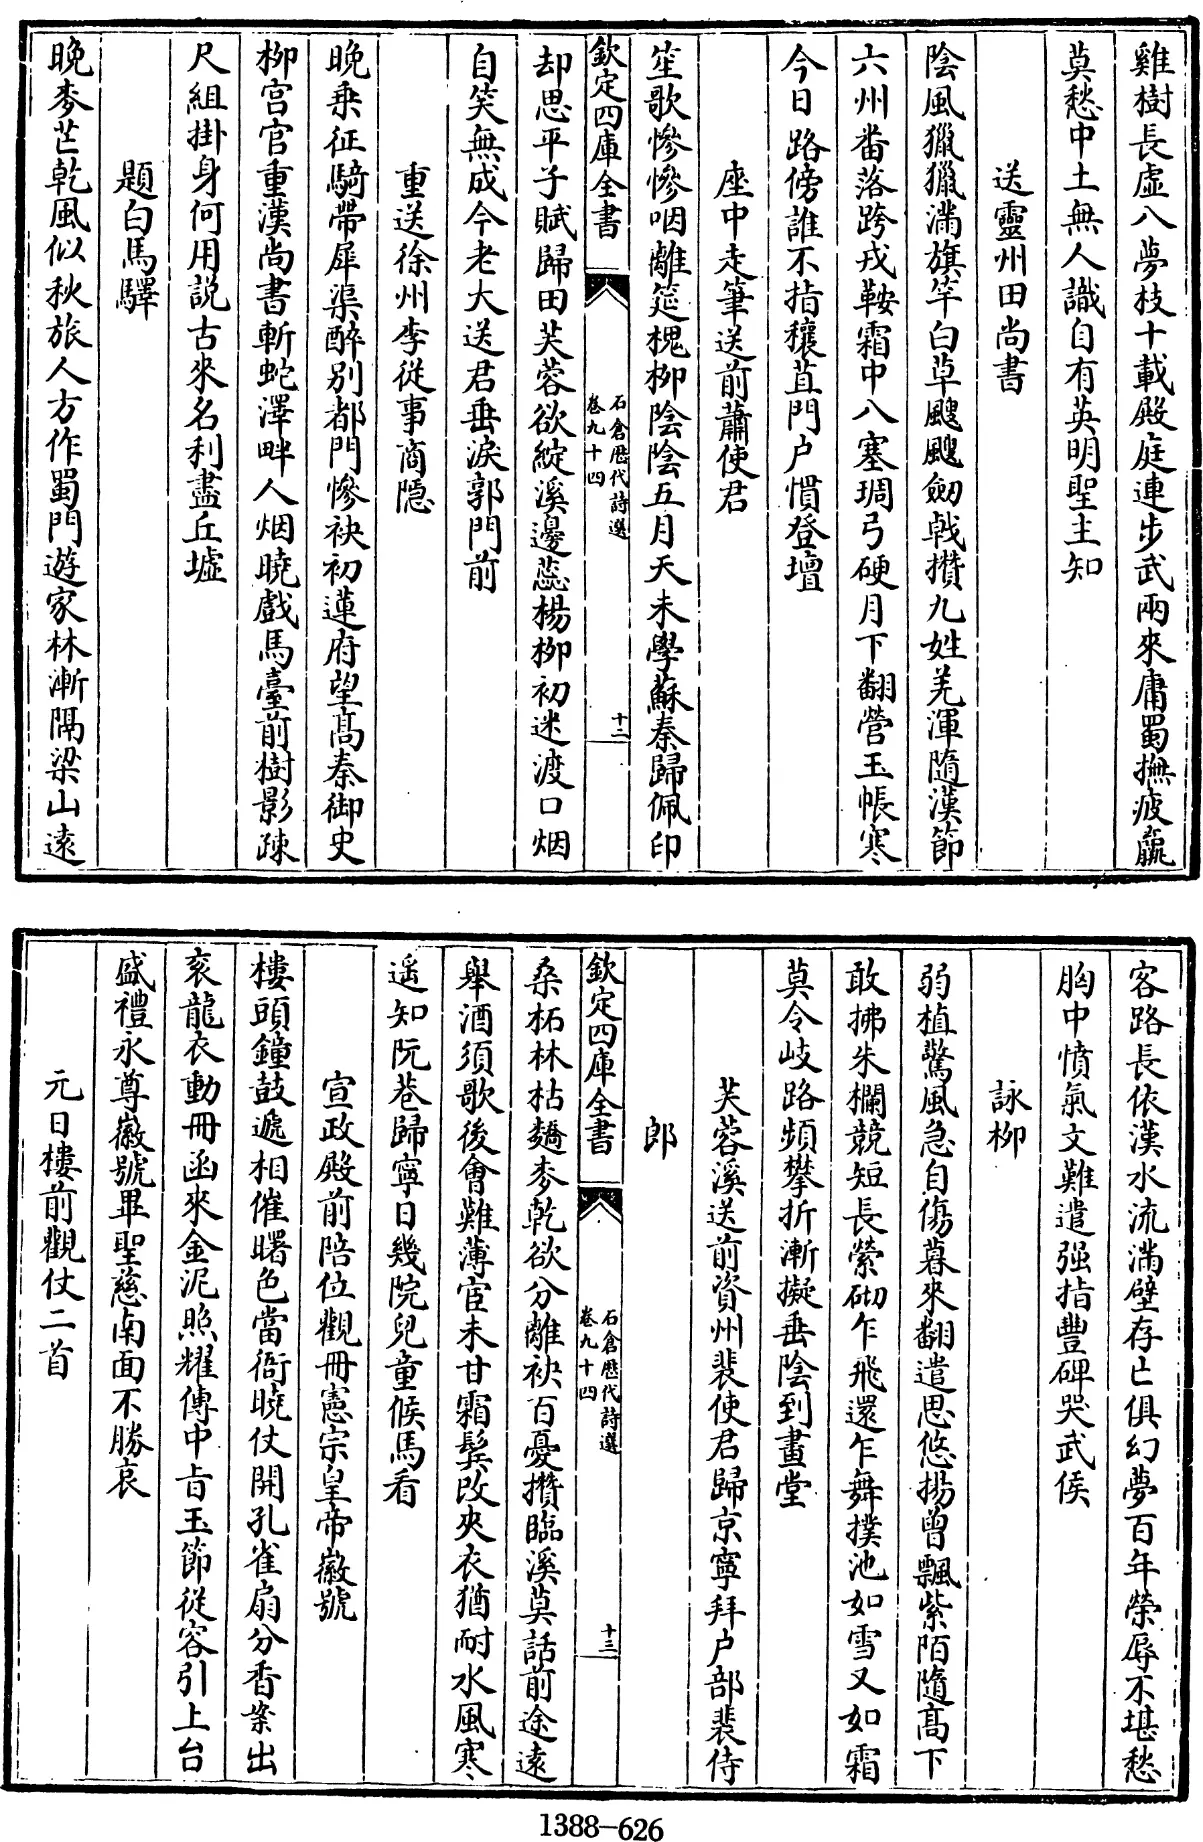 雞樹長虛八夢枝十載殿庭連步武兩來庸蜀撫疲羸
莫愁中土無人識自有英明聖主知
送靈州田尚書
陰風獵獵滿旗竿白草颼颼劒戟攢九姓羌渾隨漢節
六州畨落跨戎鞍霜中八塞琱弓硬月下翻營玉帳寒
今日路傍誰不指穰苴門户慣登壇
座中走筆送前蕭使君
笙歌慘慘咽離筵槐柳陰陰五月天未學蘇秦歸佩印
欽定四庫全書
石倉歷代詩選
卷九十四
十二
却思平子賦歸田芙蓉欲綻溪邊蕊楊柳初迷渡口烟
自笑無成今老大送君垂淚郭門前
重送徐州李從事商隱
晚乗征騎帶犀渠醉别都門慘袂初蓮府望髙秦御史
柳宫官重漢尚書斬蛇澤畔人烟曉戲馬臺前樹影疎
尺組掛身何用説古來名利盡丘墟
題白馬驛
晚麥芒乾風似秋旅人方作蜀門遊家林漸隔梁山遠
客路長依漢水流滿壁存亡俱幻夢百年榮辱不堪愁
胸中憤氣文難遣强指豐碑哭武侯
詠柳
弱植驚風急自傷暮來翻遣思悠揚曾飄紫陌隨髙下
敢拂朱欄競短長縈砌乍飛還乍舞撲池如雪又如霜
莫令岐路頻攀折漸擬垂陰到畫堂
芙蓉溪送前資州裴使君歸京寧拜户部裴侍
郎
欽定四庫全書
石倉歷代詩選
卷九十四
十三
桑柘林枯蕎麥乾欲分離袂百憂攢臨溪莫話前途遠
舉酒須歌後㑹難薄宦未甘霜髩改夾衣猶耐水風寒
遥知阮巷歸寧日幾院兒童候馬看
宣政殿前陪位觀冊憲宗皇帝徽號
樓頭鐘鼓遞相催曙色當衙曉仗開孔雀扇分香案出
衮龍衣動冊函來金泥照耀傳中㫖玉節從容引上台
盛禮永尊徽號畢聖慈南面不勝哀
元日樓前觀仗二首
1388-626